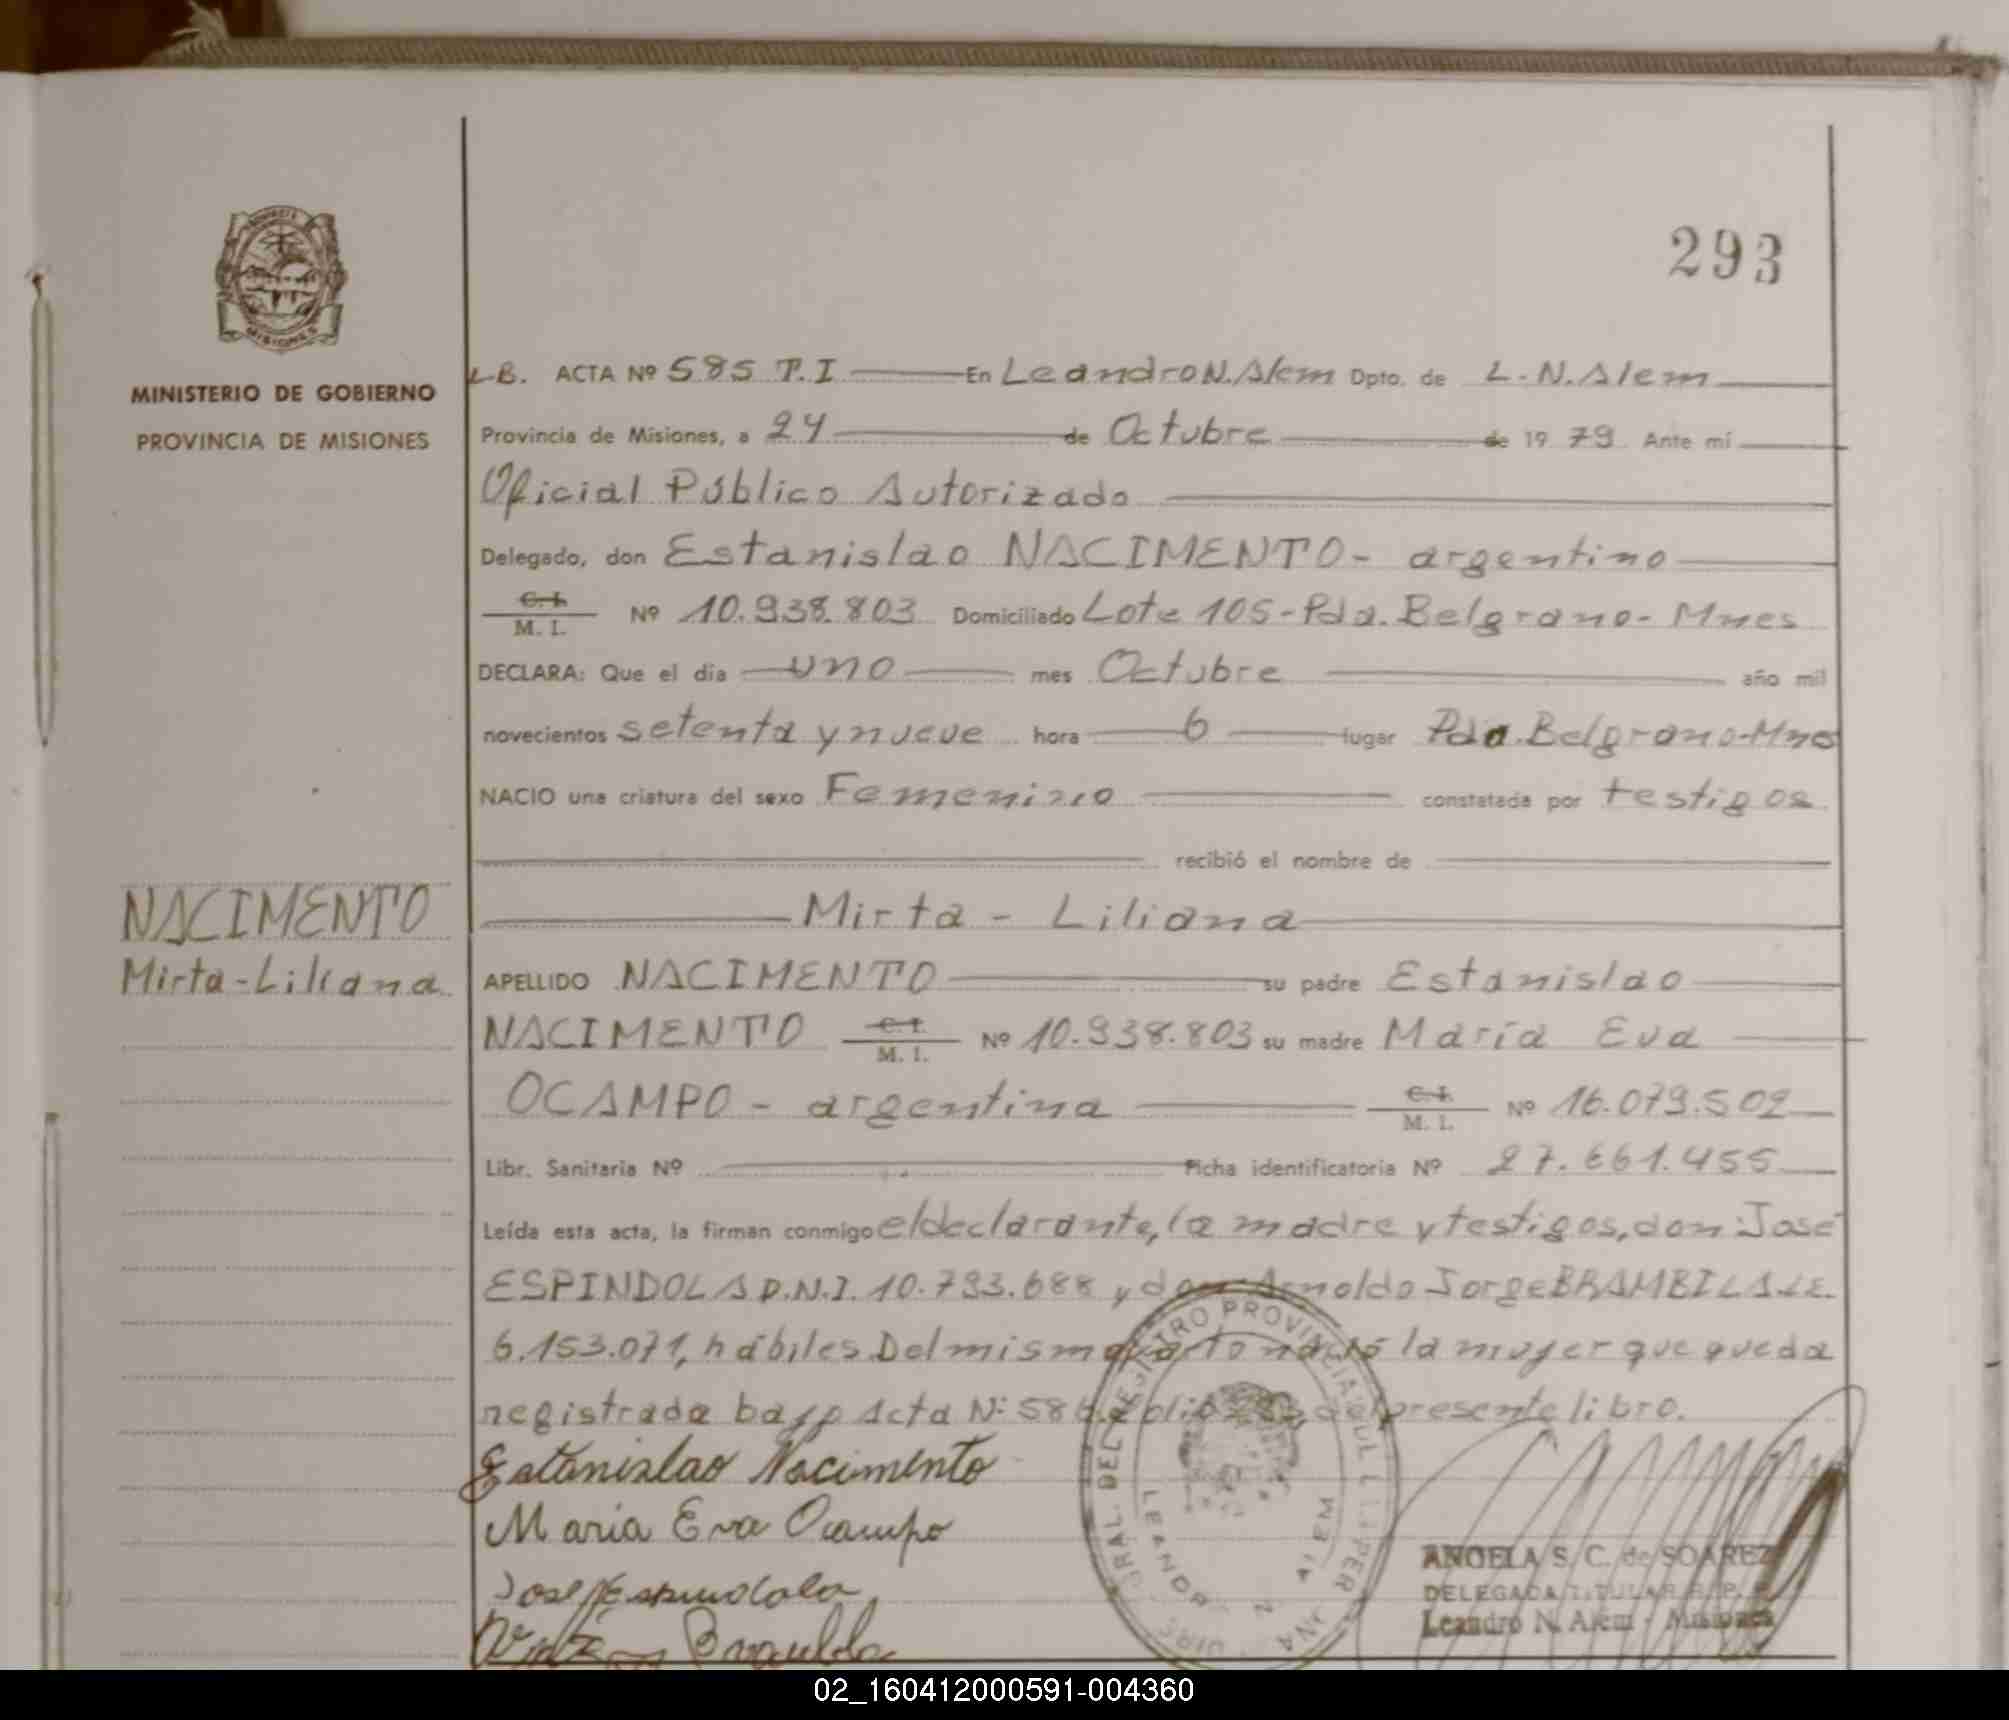 293
MISIONES
MINISTERIO DE GOBIERNO
PROVINCIA DE MISIONES
L.B. ACTA Nº 585 T.I En Leandro N. Alem Dpto. de L.N. Alem
Provincia de Misiones, a 24 de Octubre de 1979 Ante mí
Oficial Público Autorizado
Delegado, don Estanislao NACIMENTO- argentino
C.I. M.I. Nº 10.938.803 Domiciliado Lote 105-Pda. Belgrano- Mnes
DECLARA: Que el día uno mes Octubre año mil
novecientos setenta y nueve hora 6 lugar Pda. Belgrano-Mnes
NACIO una criatura del sexo Femenino constatada por testigos
recibió el nombre de
Mirta - Liliana
NACIMENTO
Mirta-Liliana
APELLIDO NACIMENTO su padre Estanislao
NACIMENTO C.I. M.I. Nº 10.938.803 su madre María Eva
OCAMPO - argentina C.I. M.I. Nº 16.079.502
Libr. Sanitaria Nº Ficha identificatoria Nº 27.661.455
Leída esta acta, la firman conmigo el declarante, la madre y testigos, don José
ESPINDOLA D.N.I. 10.793.688 y don Arnoldo Jorge BRAMBILA L.E.
6.153.071, hábiles. Del mismo parto nació la mujer que queda
registrada bajo Acta Nº 586 folio del presente libro.
Estanislao Nacimento
Maria Eva Ocampo
José Espindola
GRAL. DEL REGISTRO PROVINCIAL
LEANDRO N. ALEM
ANGELA S. C. de SOAREZ
DELEGADA TITULAR R.P.
Leandro N. Alem - Misiones
02_160412000591-004360